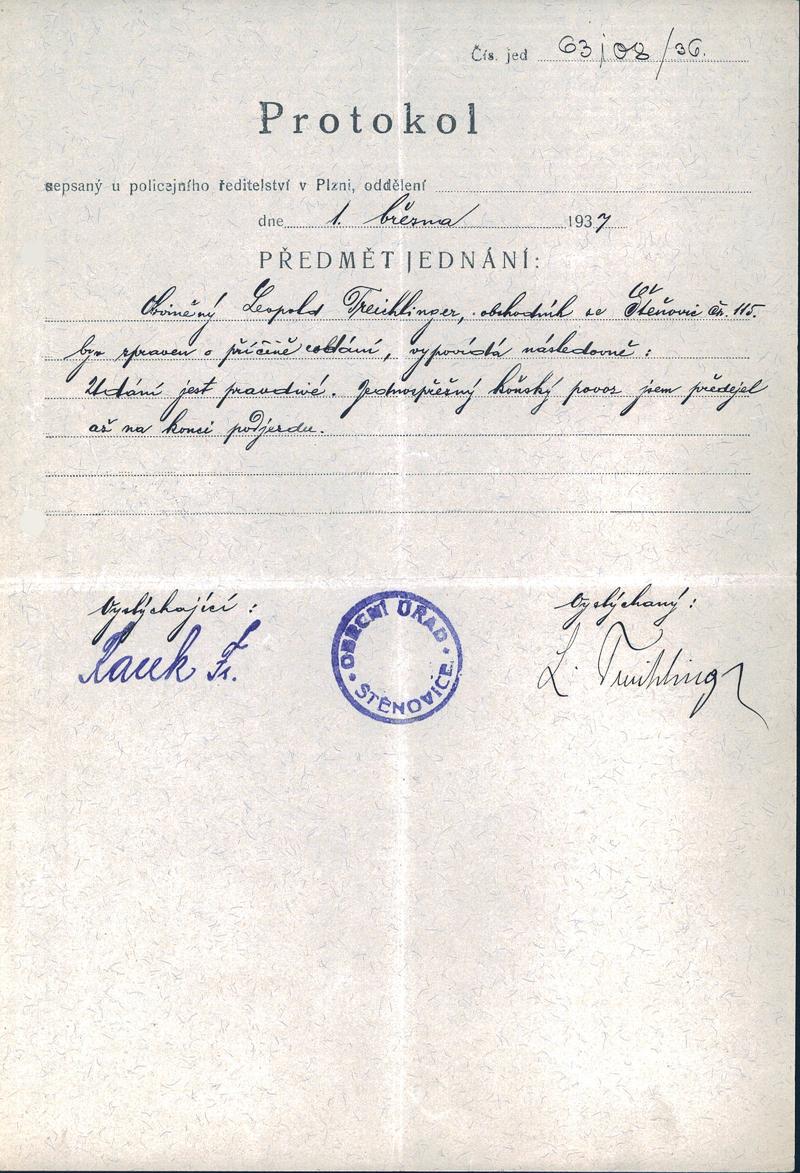 Čís. jed 6308/36.
Protokol
sepsaný u policejního ředitelství v Plzni, oddělení
dne 1. března 1937
PŘEDMĚT JEDNÁNÍ:
Obviněný Leopold Treichlinger, obchodník ze Štěnovic čp. 115.
byv zpraven o příčině udání, vypovídá následovně:
Udání jest pravdivé. Jednospřežný koňský povoz jsem předejel
až na konci podjezdu.
Vyslýchající:
Vyslýchaný:
Fr.
L. Treichlinger
OBECNÍ ÚŘAD
ŠTĚNOVICE